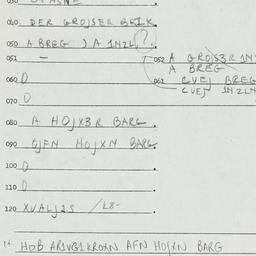 040 DER GROJSER BRIK
050 A BREG ) A 1NZL (?)
051 —
052 A GROJS3R 1N
A BREG
061 CVEJ BREG
CVEJ 1NZLN
060 0
070 0
080 A HOJX3R BARG
090 OJFN HOJXN BARG
100 0
110 0
120 XVALJ2S /L8-
HOB AR1VG1KROXN AFN HOJXN BARG